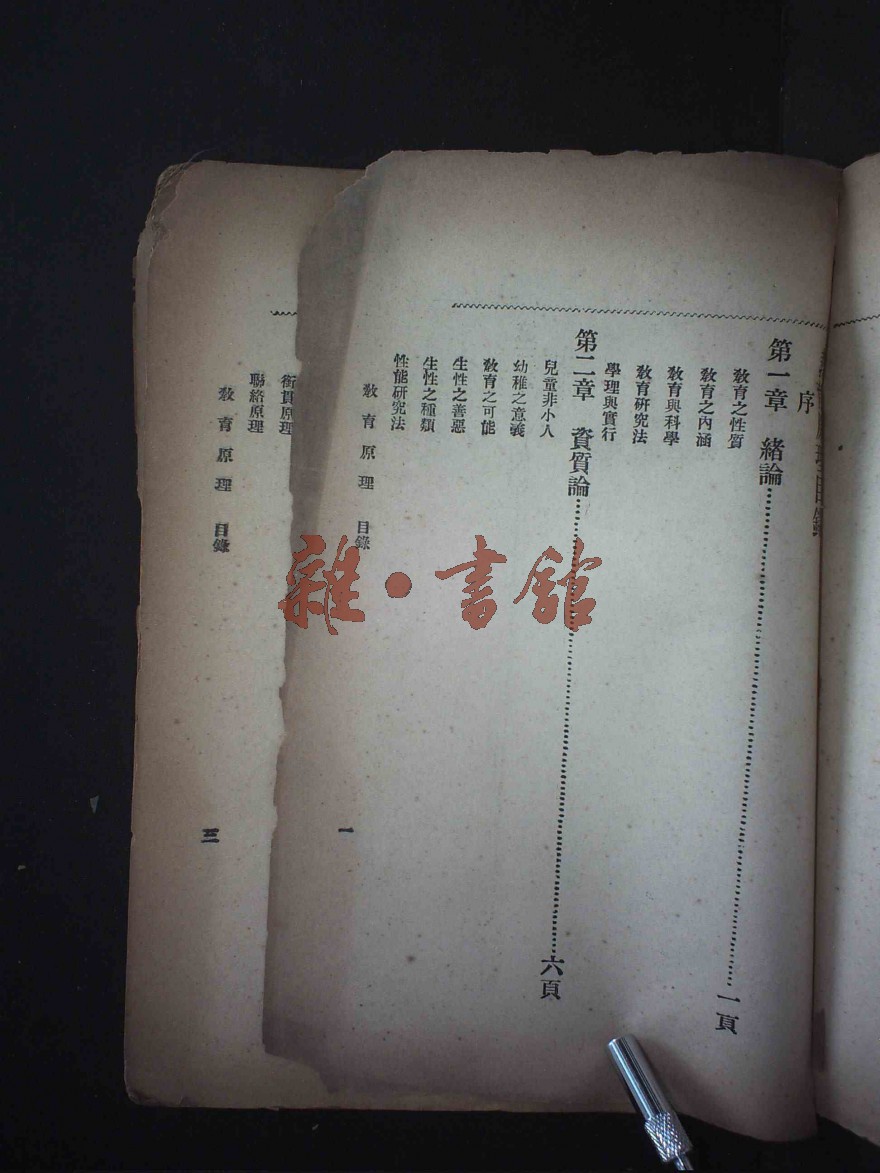 序
第一章 緒論……一頁
教育之性質
教育之內涵
教育與科學
教育研究法
學理與實行
第二章 資質論……六頁
兒童非小人
幼稚之意義
教育之可能
生性之善惡
生性之種類
性能研究法
教育原理 目錄
一
銜貫原理
聯絡原理
教育原理 目錄
三
雜·書館